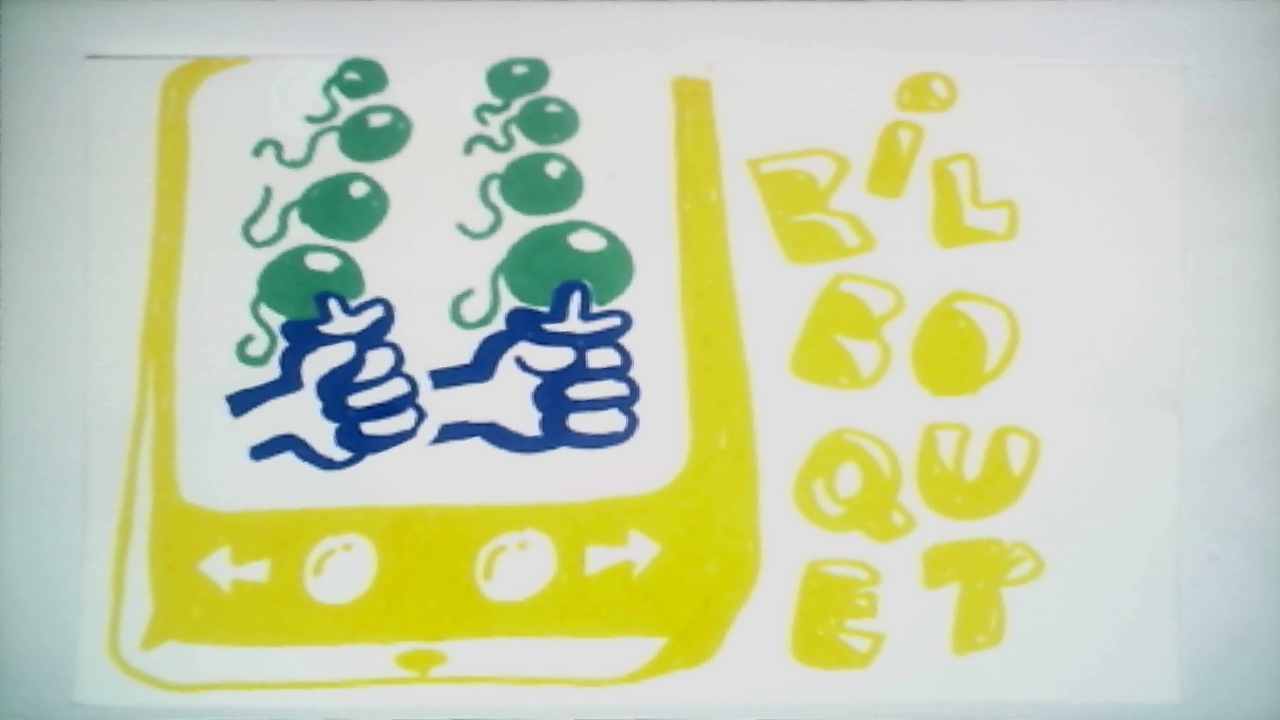 BiL
BO
QU
ET